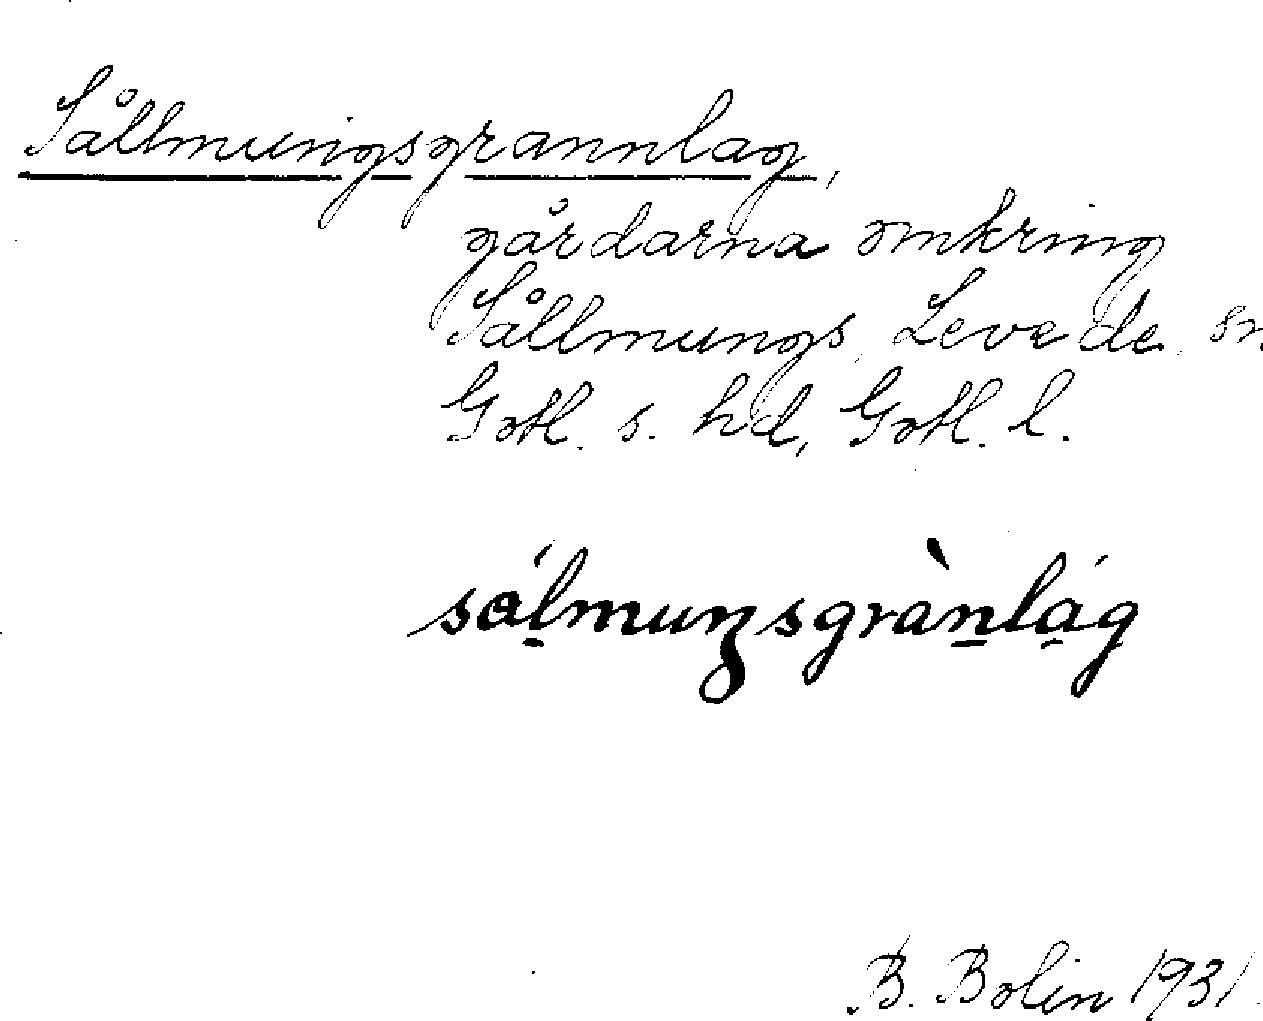 Sållmungsgrannlag,
gårdarna omkring
Sållmungs, Levede sn.
Gotl. s. hd, Gotl. l.
sálmuŋsgrànlág
B. Bolin 1931.